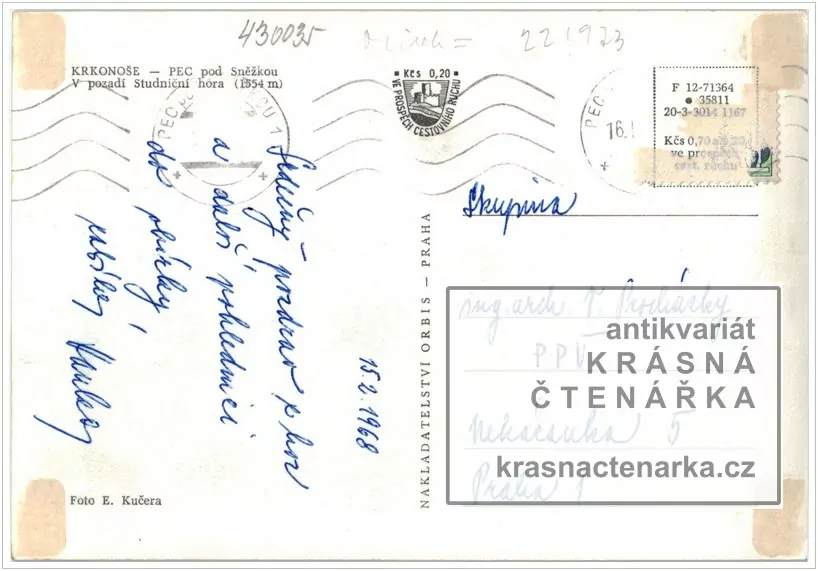 430035
221923
KRKONOŠE — PEC pod Sněžkou
V pozadí Studniční hora (1554 m)
Kčs 0,20
VE PROSPĚCH CESTOVNÍHO RUCHU
PEC
16.
F 12-71364
35811
20-3-3014 1167
Kčs 0,70
ve prospěch
cest. ruchu
Srdečný pozdrav z hor
a další pohlednici
do sbírky
15.2.1968
NAKLADATELSTVÍ ORBIS — PRAHA
Skupina
ing arch Procházky
PPÚ
Nekázanka 5
Praha 1
antikvariát
KRÁSNÁ
ČTENÁŘKA
krasnactenarka.cz
Foto E. Kučera